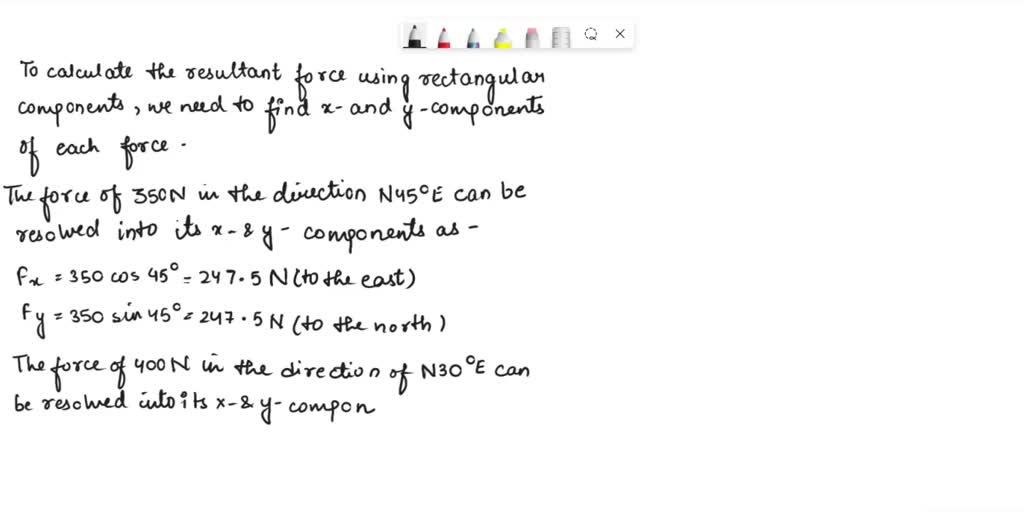 To calculate the resultant force using rectangular
components, we need to find x- and y-components
of each force.
The force of 350N in the direction N45°E can be
resolved into its x- & y- components as -
Fx = 350 cos 45° = 247.5 N (to the east)
Fy = 350 sin 45° = 247.5 N (to the north)
The force of 400N in the direction of N30°E can
be resolved into its x-& y- compon